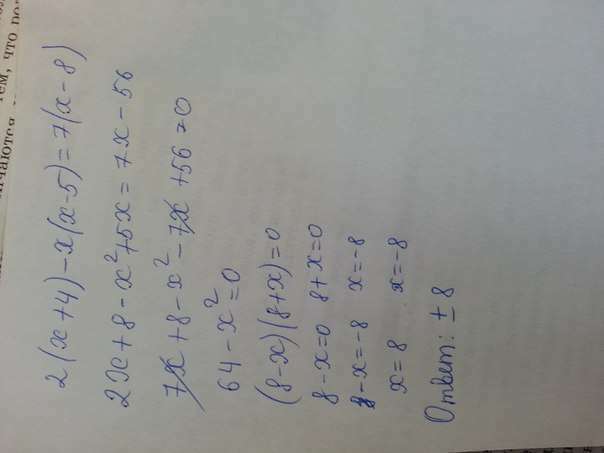 2(x+4)-x(x-5)=7(x-8)
2x+8-x²+5x=7x-56
7x+8-x²-7x+56=0
64-x²=0
(8-x)(8+x)=0
8-x=0 8+x=0
-x=-8 x=-8
x=8 x=-8
Ответ: ±8
тем, что